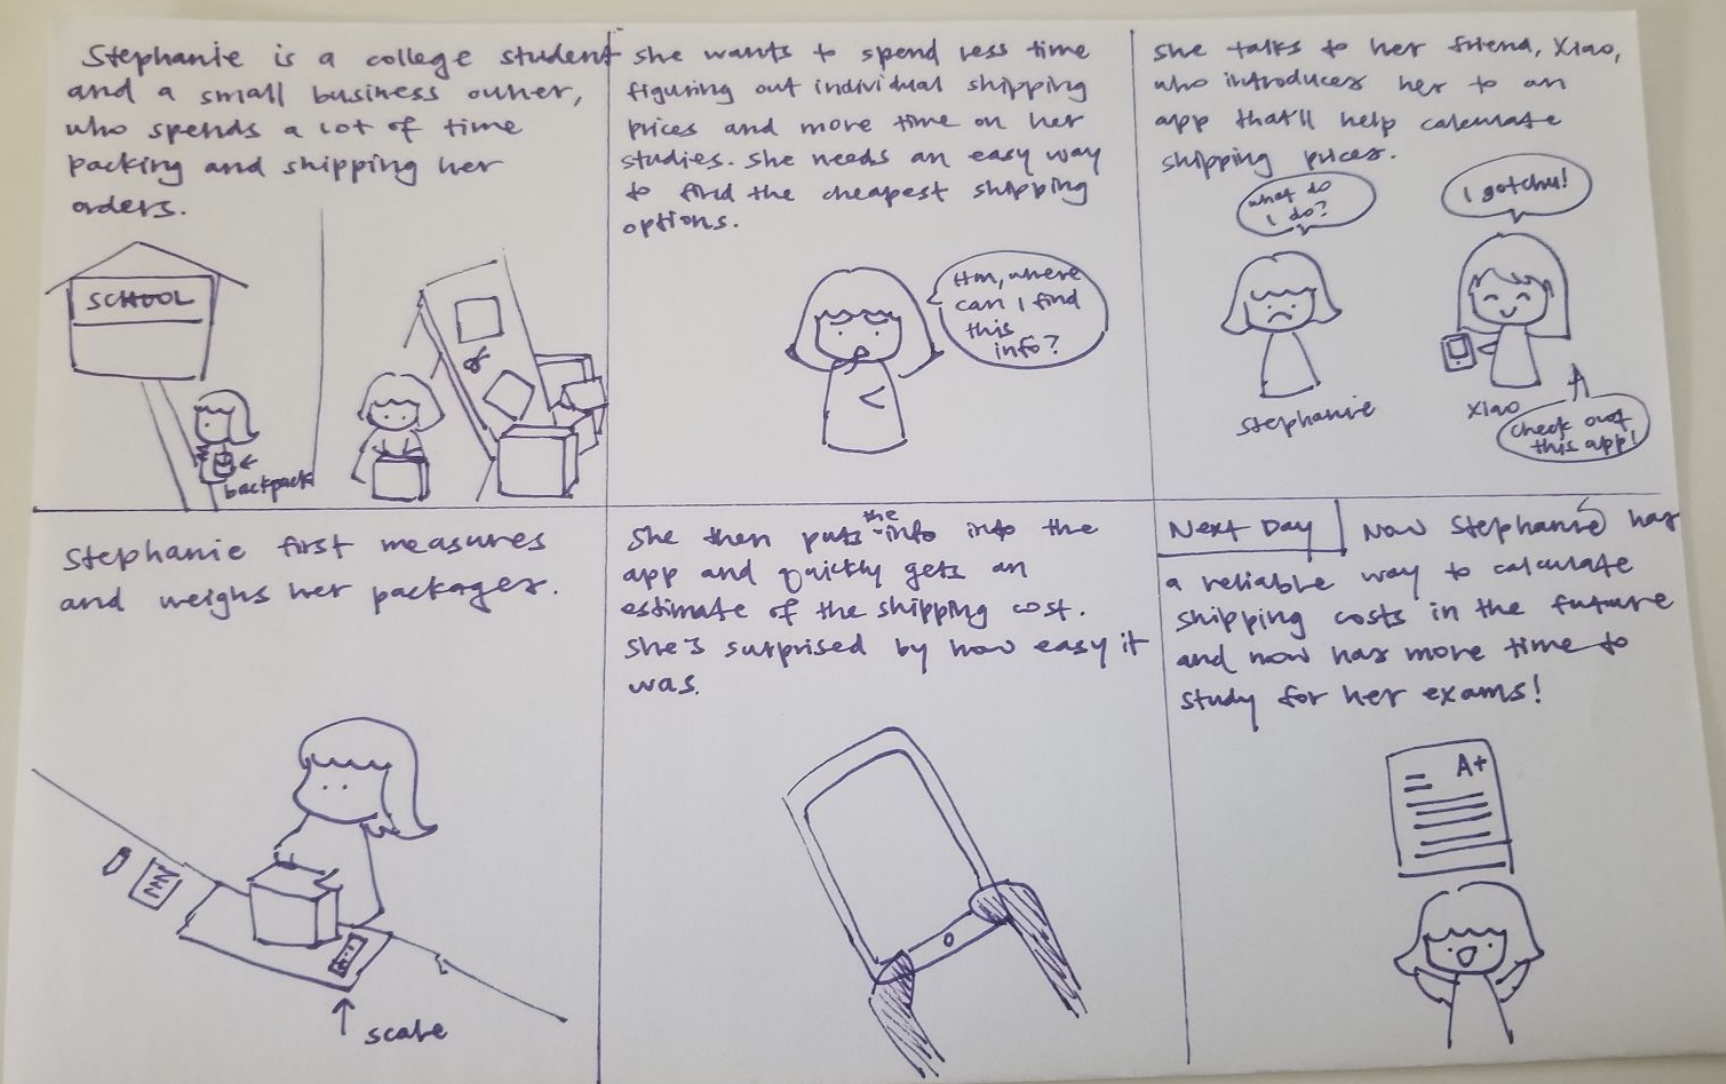 Stephanie is a college student
and a small business owner,
who spends a lot of time
packing and shipping her
orders.
SCHOOL
backpack
she wants to spend less time
figuring out individual shipping
prices and more time on her
studies. She needs an easy way
to find the cheapest shipping
options.
Hm, where
can I find
this
info?
She talks to her friend, Xiao,
who introduces her to an
app that'll help calculate
shipping prices.
what do
I do?
I gotchu!
Stephanie
Xiao
check out
this app!
Stephanie first measures
and weighs her packages.
scale
She then puts the info into the
app and quickly gets an
estimate of the shipping cost.
She's surprised by how easy it
was.
Next Day
Now Stephanie has
a reliable way to calculate
shipping costs in the future
and now has more time to
study for her exams!
A+